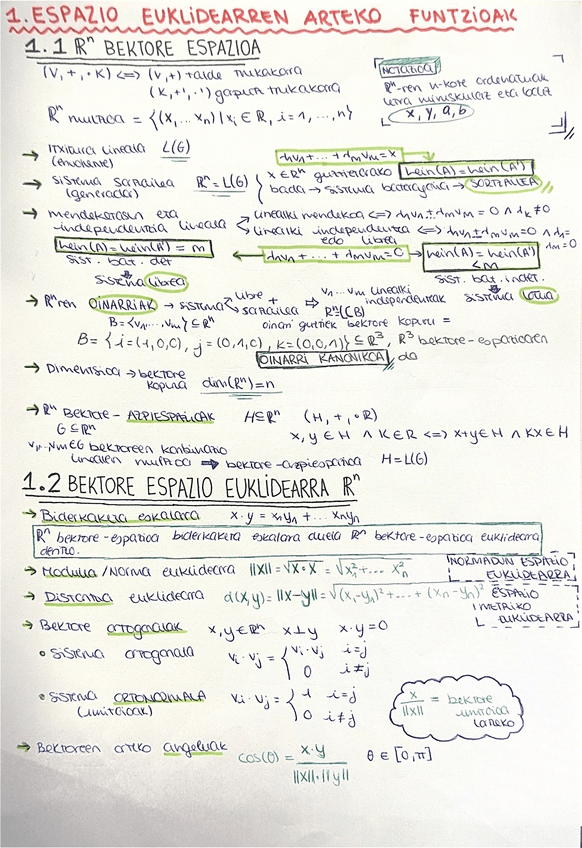 1. ESPAZIO EUKLIDEARREN ARTEKO FUNTZIOAK
1.1 Rⁿ BEKTORE ESPAZIOA
(V, +, · K) <=> (V, +) talde trukakorra
(K, +, ·) gorputz trukakorra
Rⁿ multzoa = {(x₁ ... xₙ) | xᵢ ∈ R, i = 1, ..., n}
NOTAZIOA
Rⁿ-ren n-kote ordenatuak
letra minuskulaz eta lodiz
x, y, a, b
→ Itxitura lineala L(G)
(envolvente)
→ Sistema sortzailea Rⁿ = L(G)
(generador)
λ₁v₁ + ... + λₘvₘ = x
x ∈ Rⁿ guztietarako
bada → sistema bateragarria → SORTZAILEA
hein(A) = hein(A')
→ Mendekotasun eta
independentzia lineala
linealki mendekoa <=> λ₁v₁ ± λₘvₘ = 0 ∧ λₖ ≠ 0
linealki independentea <=> λ₁v₁ ± λₘvₘ = 0 ∧ λ₁ =
edo librea
λₘ = 0
hein(A) = hein(A') = m
λ₁v₁ + ... + λₘvₘ = 0
hein(A) = hein(A')
< m
sist. bat. det
sist. bat. indet.
sistema librea
sistema lotua
→ Rⁿren OINARRIAK → sistema libre +
sortzailea
⇒ v₁ ... vₘ linealki
independenteak
B = {v₁, ... vₘ} ⊆ Rⁿ
Rⁿ = L(B)
oinarri guztiek bektore kopuru =
B = {i = (1,0,0), j = (0,1,0), k = (0,0,1)} ⊆ R³, R³ bektore-espazioaren
OINARRI KANONIKOA da
→ Dimentsioa → bektore
kopurua
dim(Rⁿ) = n
→ Rⁿ Bektore - AZPIESPAZIOAK H ⊆ Rⁿ (H, +, · R)
G ⊆ Rⁿ
x, y ∈ H ∧ K ∈ R <=> x+y ∈ H ∧ Kx ∈ H
v₁, ... vₘ ∈ G bektoreen konbinazio
linealen multzoa ⇒ bektore-azpiespazioa H = L(G)
1.2 BEKTORE ESPAZIO EUKLIDEARRA Rⁿ
→ Biderkaketa eskalarra x · y = x₁y₁ + ... xₙyₙ
Rⁿ bektore-espazioa biderkaketa eskalarra duela Rⁿ bektore-espazioa euklidearra
deritzo.
→ Modulua / Norma euklidearra ||x|| = √x · x = √x₁² + ... xₙ²
NORMADUN ESPAZIO
EUKLIDEARRA
→ Distantzia euklidearra d(x, y) = ||x - y|| = √(x₁ - y₁)² + ... + (xₙ - yₙ)²
ESPAZIO
METRIKO
EUKLIDEARRA
→ Bektore ortogonalak x, y ∈ Rⁿ x ⊥ y x · y = 0
• Sistema ortogonala vᵢ · vⱼ = { vᵢ · vⱼ i = j
0 i ≠ j
• Sistema ORTONORMALA vᵢ · vⱼ = { 1 i = j
(unitarioak) 0 i ≠ j
x / ||x|| = bektore
unitarioa
lortzeko
→ Bektoreen arteko angeluak cos(θ) = x · y / ||x|| · ||y|| θ ∈ [0, π]